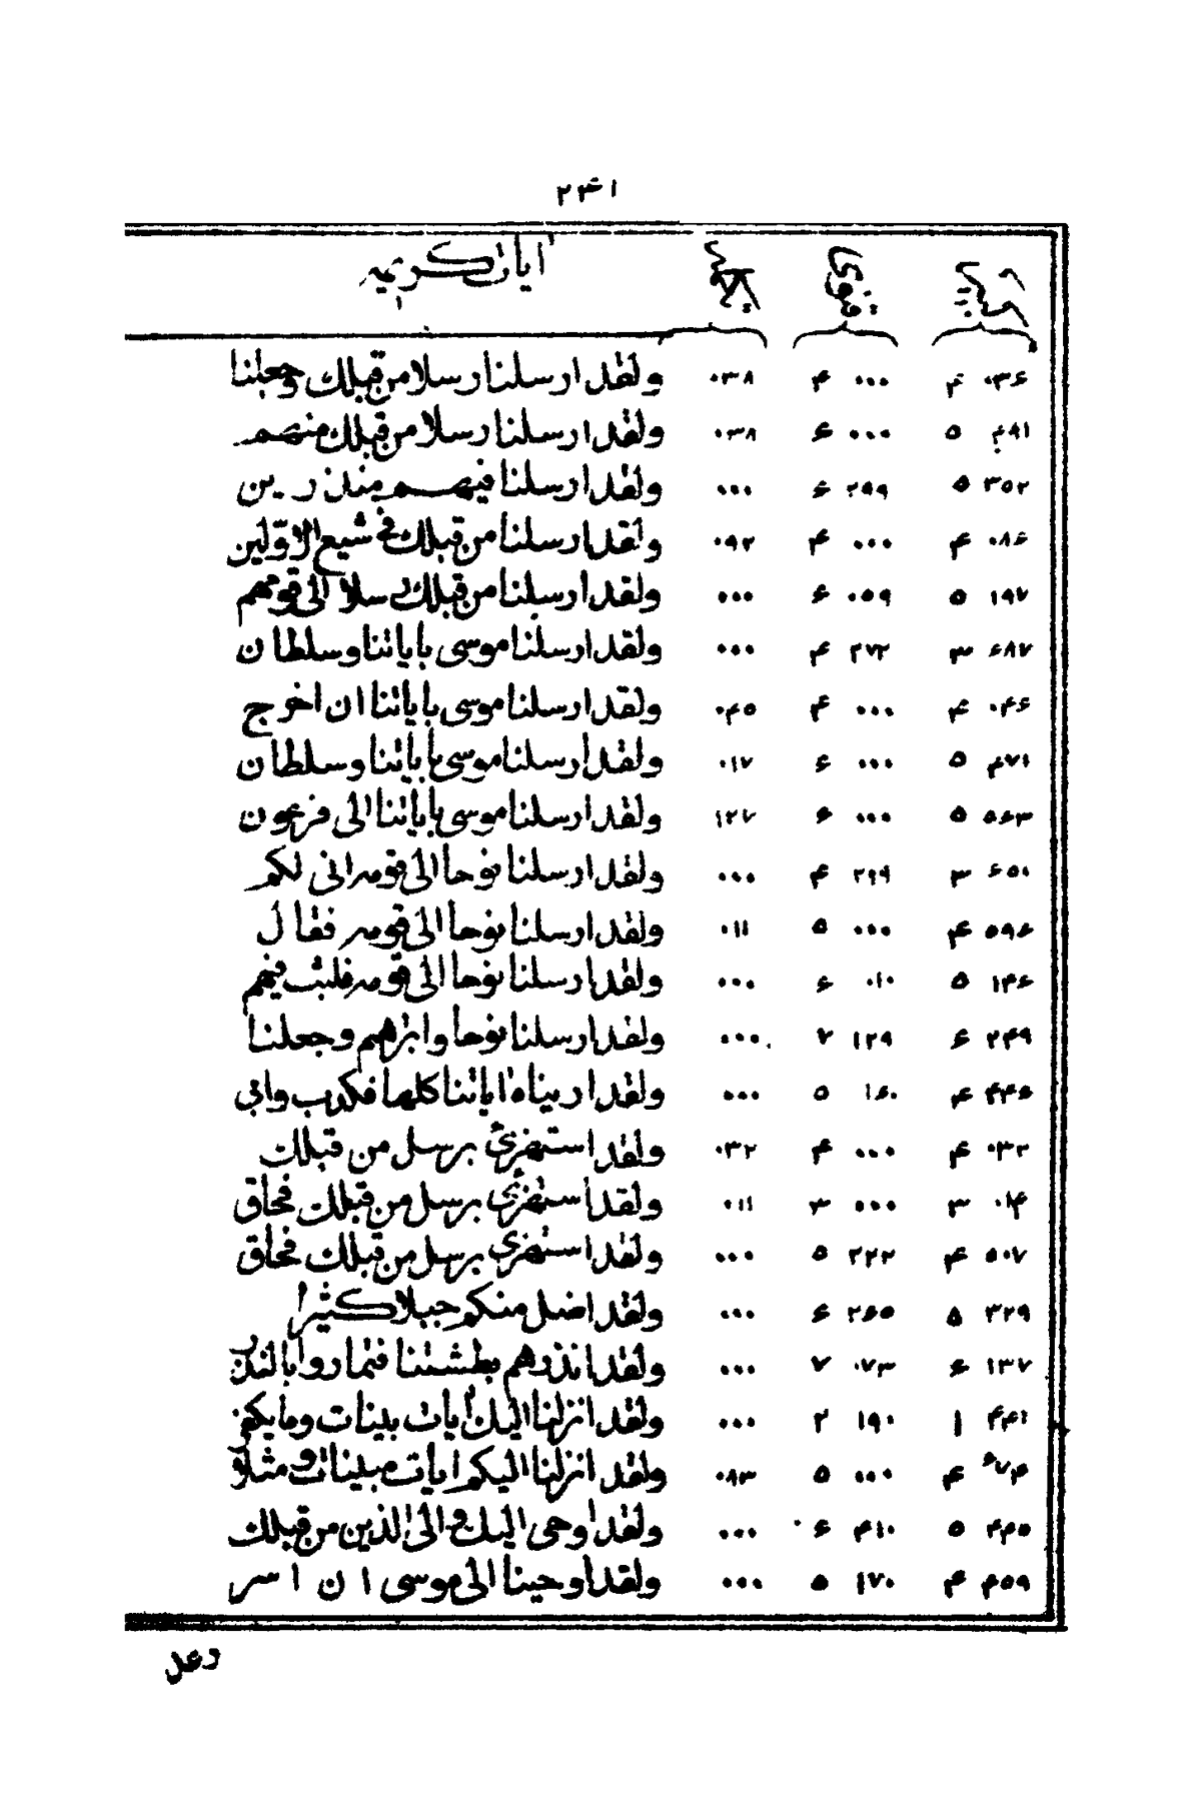 ۲۴۱
قنوی آیات کریمه
۰۳۶ ۴ ۰۰۰ ۴ ۰۳۸ ولقد ارسلنا رسلا من قبلك وجعلنا
۴۸۱ ۵ ۰۰۰ ۶ ۰۳۸ ولقد ارسلنا رسلا من قبلك منهم
۳۵۲ ۵ ۲۹۹ ۶ ۰۰۰ ولقد ارسلنا فيهم منذرين
۰۸۶ ۴ ۰۰۰ ۴ ۰۹۲ ولقد ارسلنا من قبلك فى شيع الاوّلين
۱۹۷ ۵ ۰۵۹ ۶ ۰۰۰ ولقد ارسلنا من قبلك رسلا الى قومهم
۶۸۷ ۳ ۲۷۲ ۴ ۰۰۰ ولقد ارسلنا موسى باياتنا وسلطان
۰۴۶ ۴ ۰۰۰ ۴ ۰۴۵ ولقد ارسلنا موسى باياتنا ان اخرج
۴۷۱ ۵ ۰۰۰ ۶ ۰۱۷ ولقد ارسلنا موسى باياتنا وسلطان
۵۶۳ ۵ ۰۰۰ ۶ ۱۲۷ ولقد ارسلنا موسى باياتنا الى فرعون
۶۵۱ ۳ ۲۱۹ ۴ ۰۰۰ ولقد ارسلنا نوحا الى قومه انى لكم
۵۹۶ ۴ ۰۰۰ ۵ ۰۱۱ ولقد ارسلنا نوحا الى قومه فقال
۱۴۶ ۵ ۰۱۰ ۶ ۰۰۰ ولقد ارسلنا نوحا الى قومه فلبث فيهم
۲۴۹ ۶ ۱۲۹ ۷ ۰۰۰ ولقد ارسلنا نوحا وابراهيم وجعلنا
۴۴۶ ۴ ۱۶۰ ۵ ۰۰۰ ولقد اريناه اياتنا كلها فكذب وابى
۰۳۲ ۴ ۰۰۰ ۴ ۰۳۲ ولقد استهزئ برسل من قبلك
۰۱۴ ۳ ۰۰۰ ۳ ۰۱۱ ولقد استهزئ برسل من قبلك فحاق
۵۰۷ ۴ ۲۲۲ ۵ ۰۰۰ ولقد استهزئ برسل من قبلك فحاق
۳۲۹ ۵ ۲۶۵ ۶ ۰۰۰ ولقد اضل منكم جبلا كثيرا
۱۳۷ ۶ ۰۷۳ ۷ ۰۰۰ ولقد انذرهم بطشتنا فتماروا بالنذر
۴۴۱ ۱ ۱۹۰ ۲ ۰۰۰ ولقد انزلنا اليك ايات بينات وما يكفر
۶۷۴ ۴ ۰۰۰ ۵ ۰۸۳ ولقد انزلنا اليكم ايات مبينات ومثلا
۴۴۵ ۵ ۴۱۰ ۶ ۰۰۰ ولقد اوحى اليك والى الذين من قبلك
۴۵۹ ۴ ۱۷۰ ۵ ۰۰۰ ولقد اوحينا الى موسى ان اسر